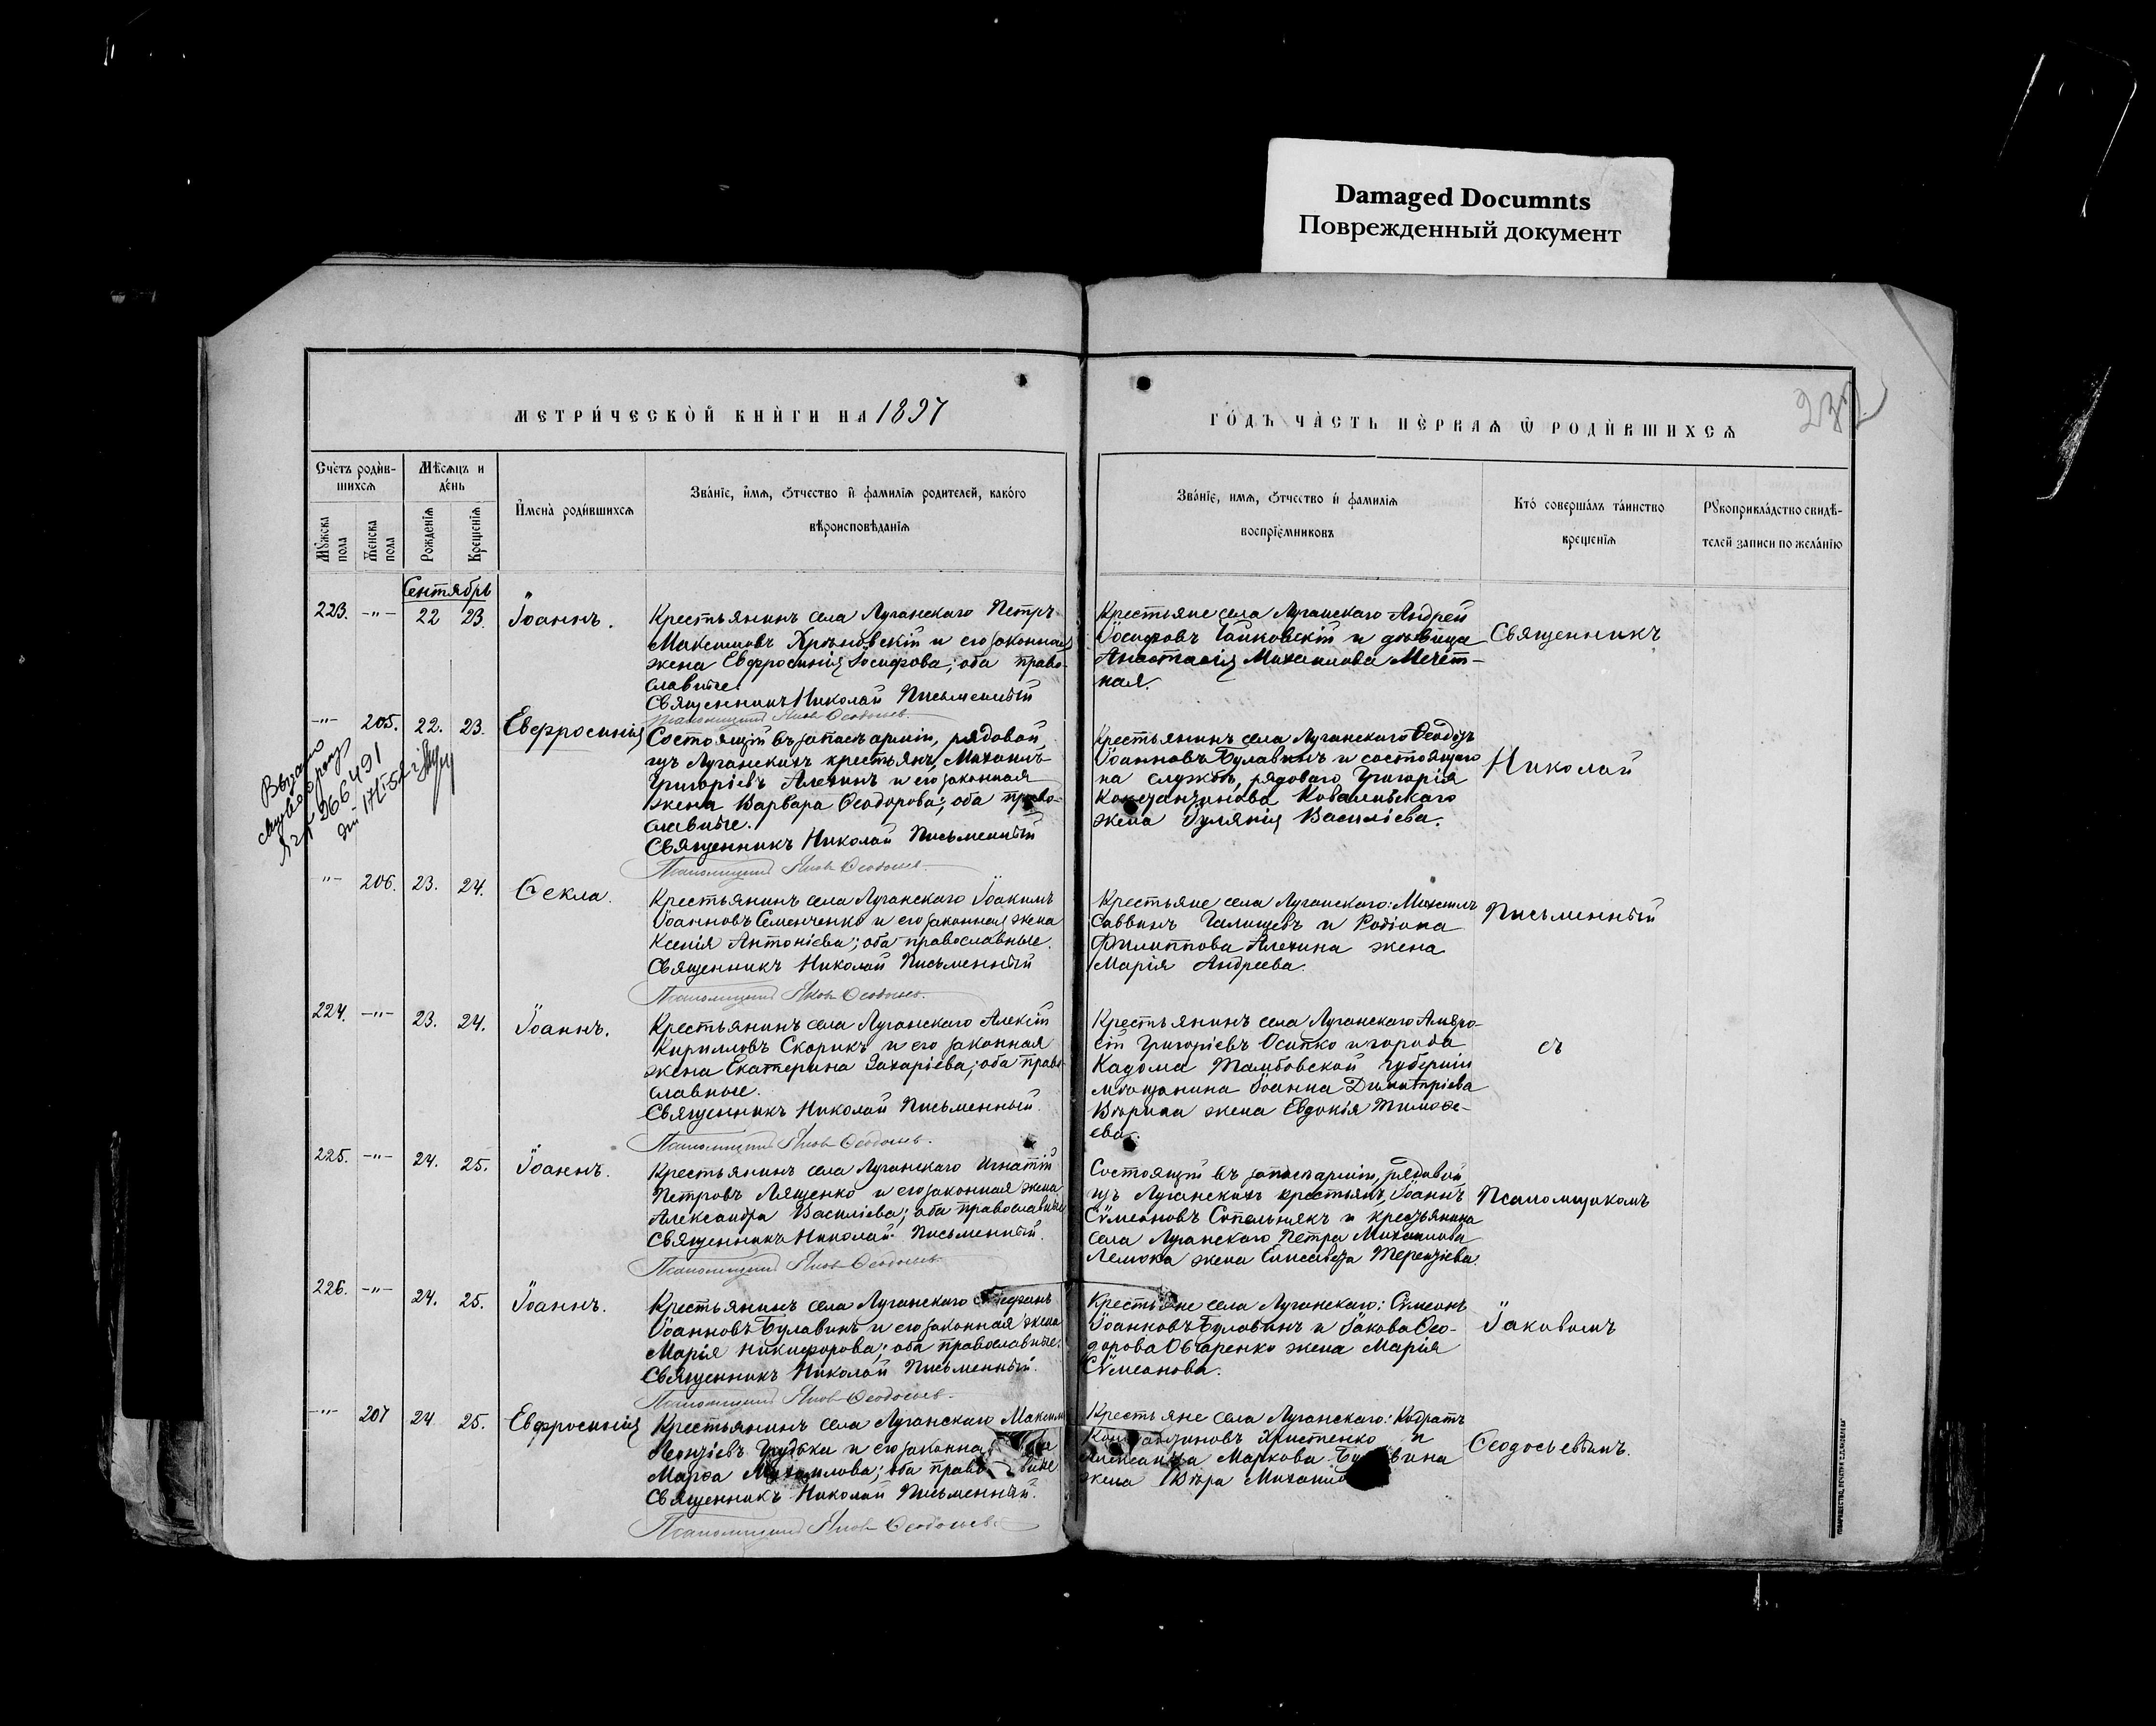 Damaged Documnts
Поврежденный документ
232
МЕТРИ́ЧЕСКОЙ КНИ́ГИ НА 1897
ГО́ДЪ ЧА́СТЬ ПЕ́РВАѦ Ѿ РОДИ́ВШИХСѦ
Сче́тъ роди́в-
шихсѧ
Мѣ́сѧцъ и
де́нь
И҆мена̀ роди́вшихсѧ
Зва́нїе, и҆́мѧ, ѻ҆́тчество и҆ фами́лїѧ роди́телей, како́гѡ
вѣроисповѣ́данїѧ
Зва́нїе, и҆́мѧ, ѻ҆́тчество и҆ фами́лїѧ
воспрїе́мниковъ
Кто́ соверша́лъ та́инство
креще́нїѧ
Рꙋкоприкла́дство свидѣ́-
телей записи по жела́нїю
Мꙋ́жска пола
Же́нска пола
Рожденїѧ
Крещенїѧ
Сентябрь
223. -"- 22 23. Іоаннъ.
Крестьянинъ села Луганскаго Петръ
Максимовъ Хрѣновскій и его законная
жена Евфросинія Іосифова; оба право-
славные.
Священникъ Николай Письменный
Псаломщикъ Яковъ Ѳеодосьев.
Крестьяне села Луганскаго Андрей
Іосифовъ Гайковскій и дѣвица
Анастасія Михаилова Мечет-
ная.
Священникъ
-"- 205. 22. 23. Евфросинія
Состоящій въ запасѣ арміи, рядовой
изъ Луганскихъ крестьянъ, Михаилъ
Григоріевъ Алехинъ и его законная
жена Варвара Ѳеодорова; оба право-
славные.
Священникъ Николай Письменный
Псаломщикъ Яковъ Ѳеодосьев.
Крестьянинъ села Луганскаго Ѳеодоръ
Іоанновъ Булавинъ и состоящаго
на службѣ, рядоваго Григорія
Константинова Ковалевскаго
жена Іуліанія Василіева.
Николай
№ 266491
"- 206. 23. 24. Ѳекла.
Крестьянинъ села Луганскаго Іоакимъ
Іоанновъ Семенченко и его законная жена
Ксенія Антоніева; оба православные.
Священникъ Николай Письменный
Псаломщикъ Яковъ Ѳеодосьев.
Крестьяне села Луганскаго: Михаилъ
Саввинъ Галищевъ и Родіона
Филиппова Алехина жена
Марія Андреева.
Письменный
224. -"- 23. 24. Іоаннъ.
Крестьянинъ села Луганскаго Алексій
Кирилловъ Скорикъ и его законная
жена Екатерина Захаріева; оба право-
славные.
Священникъ Николай Письменный.
Псаломщикъ Яковъ Ѳеодосьев.
Крестьянинъ села Луганскаго Амвро-
сій Григоріевъ Осипко и города
Кадома Тамбовской губерніи
мѣщанина Іоанна Димитріева
Вѣрина жена Евдокія Тимоѳе-
ева.
съ
225. -"- 24. 25. Іоаннъ.
Крестьянинъ села Луганскаго Игнатій
Петровъ Лященко и его законная жена
Александра Василіева; оба православные
Священникъ Николай Письменный.
Псаломщикъ Яковъ Ѳеодосьев.
Состоящій въ запасѣ арміи, рядовой
изъ Луганскихъ крестьянъ, Іоаннъ
Сѵмеоновъ Стельмякъ и крестьянина
села Луганскаго Петра Михаилова
жена Елисавета Терентіева.
Псаломщикомъ
226. -"- 24. 25. Іоаннъ.
Крестьянинъ села Луганскаго Стефанъ
Іоанновъ Булавинъ и его законная жена
Марія Никифорова; оба православные.
Священникъ Николай Письменный.
Псаломщикъ Яковъ Ѳеодосьев.
Крестьяне села Луганскаго: Сѵмеонъ
Іоанновъ Булавинъ и Іакова Ѳео-
дорова Овчаренко жена Марія
Сѵмеонова.
Іаковомъ
-"- 207 24. 25. Евфросинія
Крестьянинъ села Луганскаго Максимъ
Леонтіевъ и его законна
Марѳа Михаилова; оба право
Священникъ Николай Письменный.
Псаломщикъ Яковъ Ѳеодосьев.
Крестьяне села Луганскаго: Кодратъ
Христенко и
Маркова
жена Вѣра
Ѳеодосьевымъ.